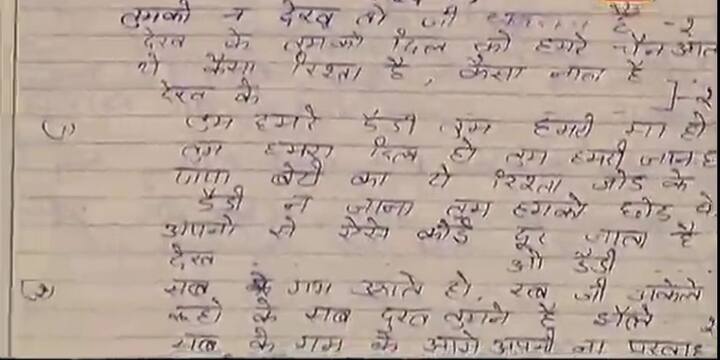 तुमको न देख तो जी है -२
देख के तुमको दिल को हमरे चैन आत
ये कैसा रिश्ता है, कैसा नाता है
देख के ]-२
(1) तुम हमरे डैडी तुम हमरी मा हो
तुम हमरा दिल हो तुम हमरी जान ह
पापा बेटी का ये रिश्ता जोड के
डैडी न जाना तुम हमको छोड के
अपनो से ऐसे कोई दूर जाता है
देख ओ डैडी
सब के गम उठाते हो, रब जी अकेले
के सब दुख तुमने है झेले २
सब के गम के आगे अपनी ना परवाह